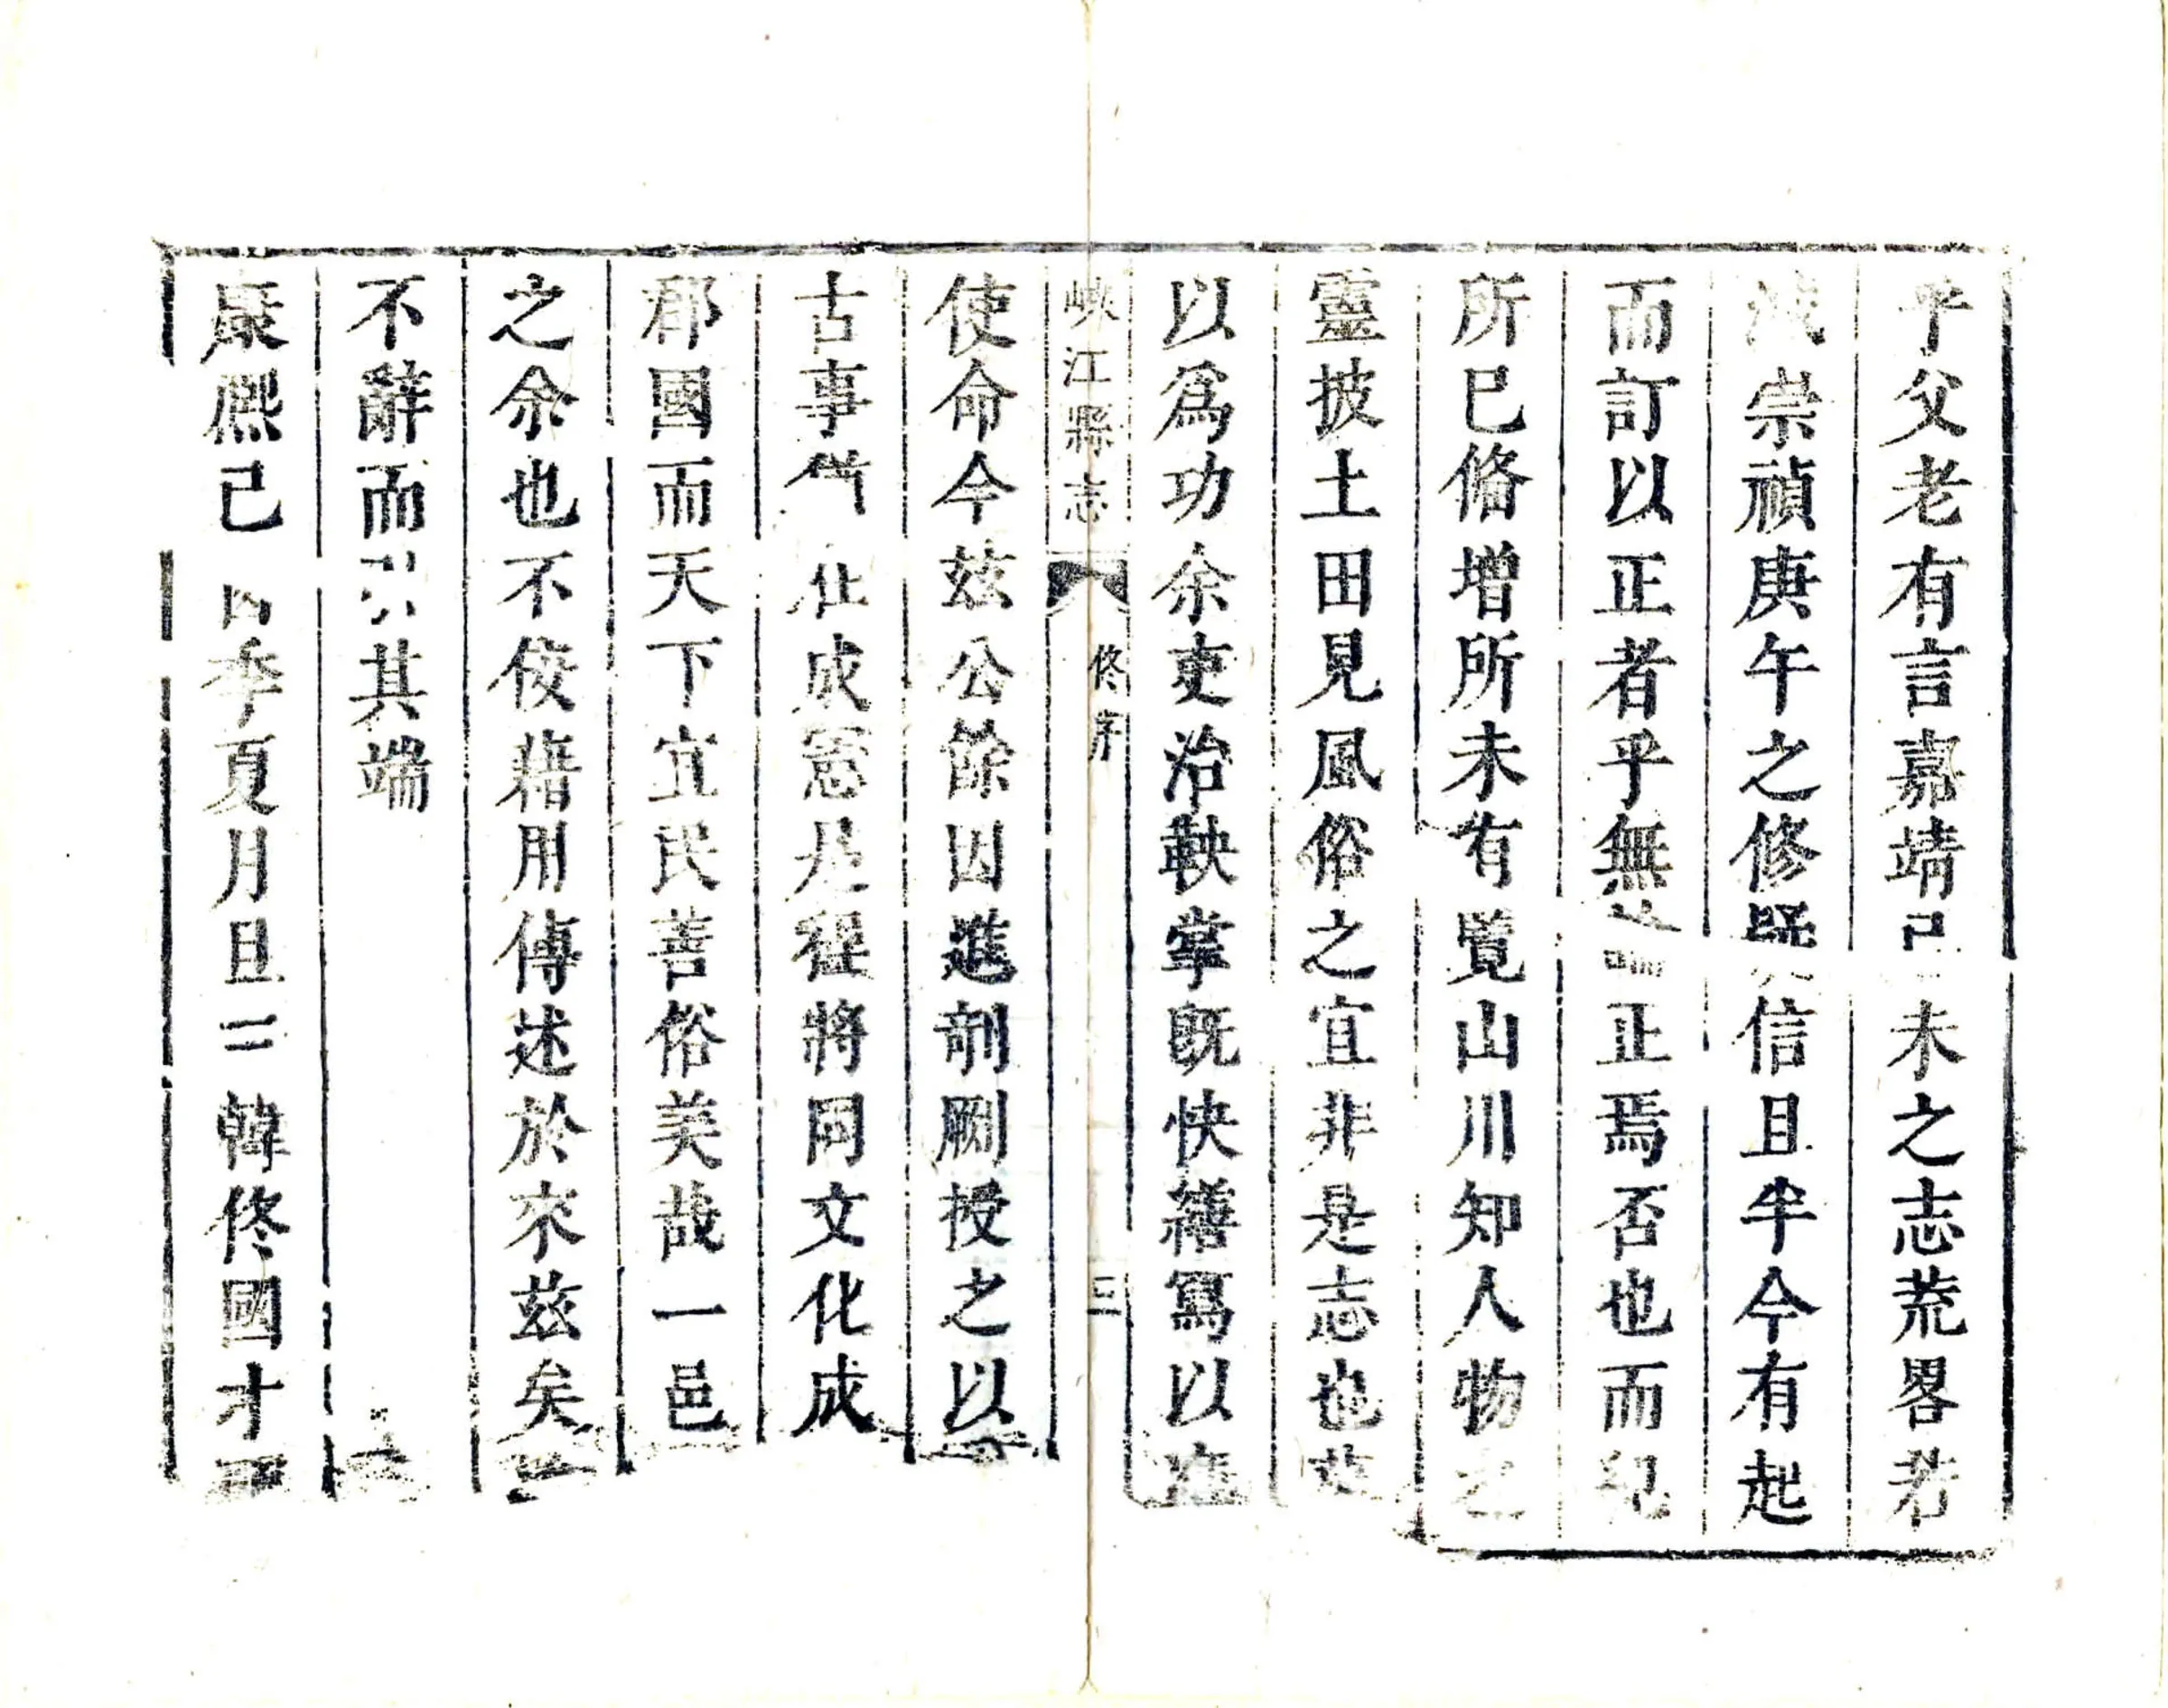 乎父老有言嘉靖己未之志荒畧若
滅崇禎庚午之修疑信且半今有起
而訂以正者乎無正焉否也而紀
所已脩增所未有覽山川知人物之
靈披土田見風俗之宜非是志也
以為功余吏治鞅掌既快繕寫以
峽江縣志
佟序
三
使命今茲公餘因進剞劂授之以
古事作成憲是程將同文化成
郡國而天下宜民善俗美哉一邑
之余也不佞藉用傳述於來茲矣
不辭而引其端
康熙己酉季夏月旦三韓佟國才